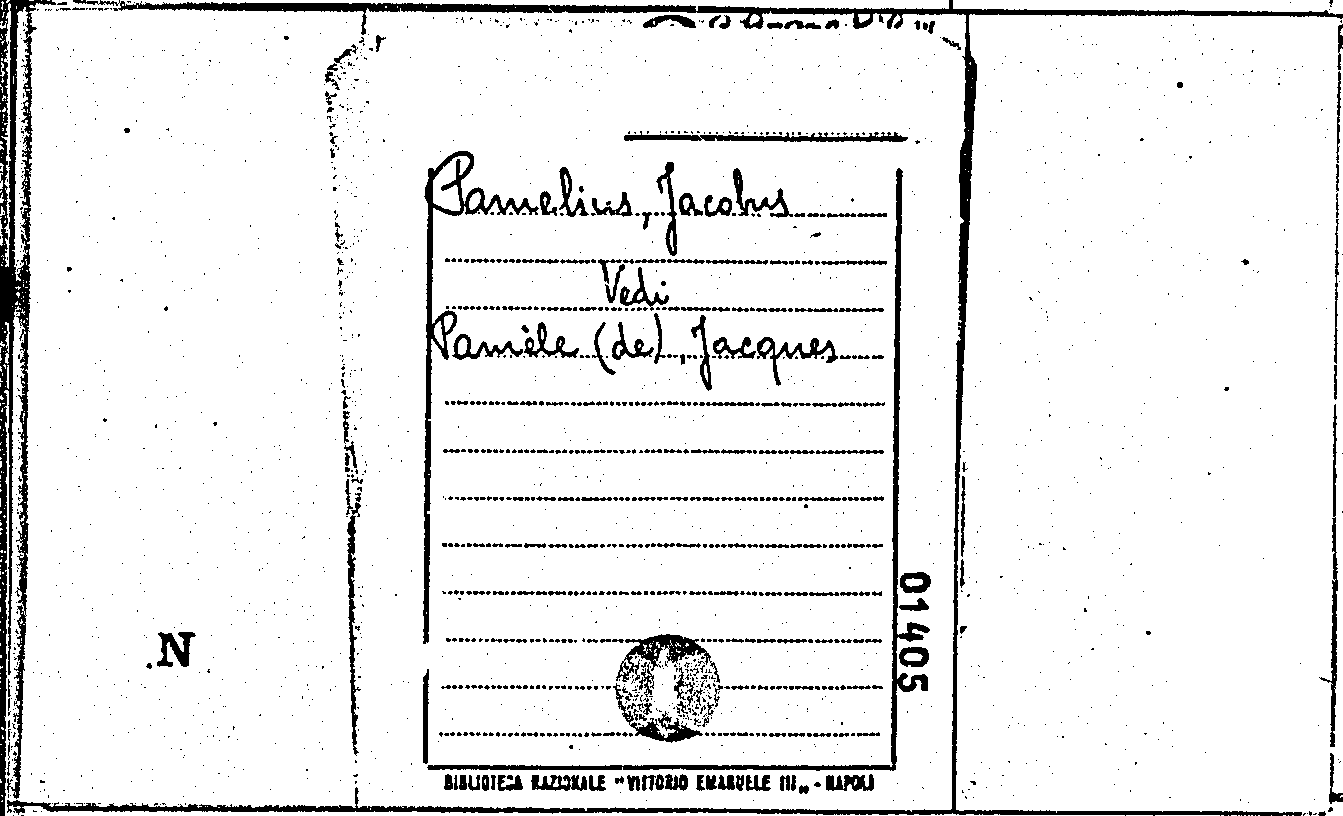 Pamelius, Jacobus
Vedi
Pamèle (de), Jacques
01405
N
BIBLIOTECA NAZIONALE "VITTORIO EMANUELE III„ - NAPOLI